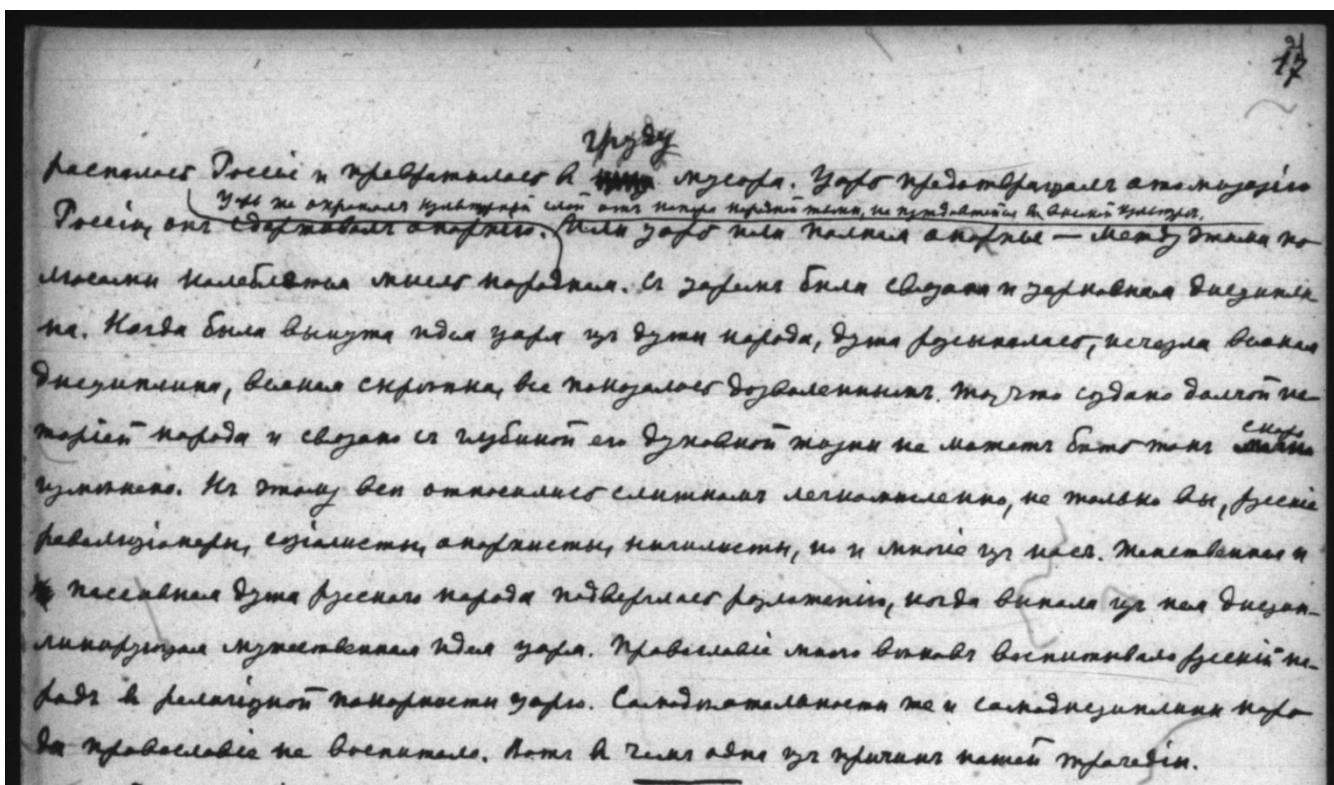 17
груду
распалась Россія и превратилась в мусора. Царь предотвращалъ атомизацію
Царь же охранялъ культурный слой отъ напора народной тьмы, не нуждавшейся въ высшей культурѣ.
Россіи, онъ сдерживалъ анархію. Или царь или полная анархія — между этими по-
люсами колеблется мысль народная. Съ царемъ была связана и церковная дисципли-
на. Когда была вынута идея царя изъ души народа, душа разсыпалась, исчезла всякая
дисциплина, всякая скрѣпка, все показалось дозволеннымъ. То, что создано долгой ис-
скоро
торіей народа и связано съ глубиной его духовной жизни не можетъ быть такъ
измѣнено. Къ этому всѣ относились слишкомъ легкомысленно, не только вы, русскіе
революціонеры, соціалисты, анархисты, нигилисты, но и многіе изъ насъ. Женственная и
пассивная душа русскаго народа подверглась разложенію, когда вынули изъ нея дисцип-
линирующая мужественная идея царя. Православіе много вѣковъ воспитывало русскій на-
родъ в религіозной покорности царю. Самодѣятельности же и самодисциплины наро-
да православіе не воспитало. Вотъ в чемъ одна изъ причинъ нашей трагедіи.